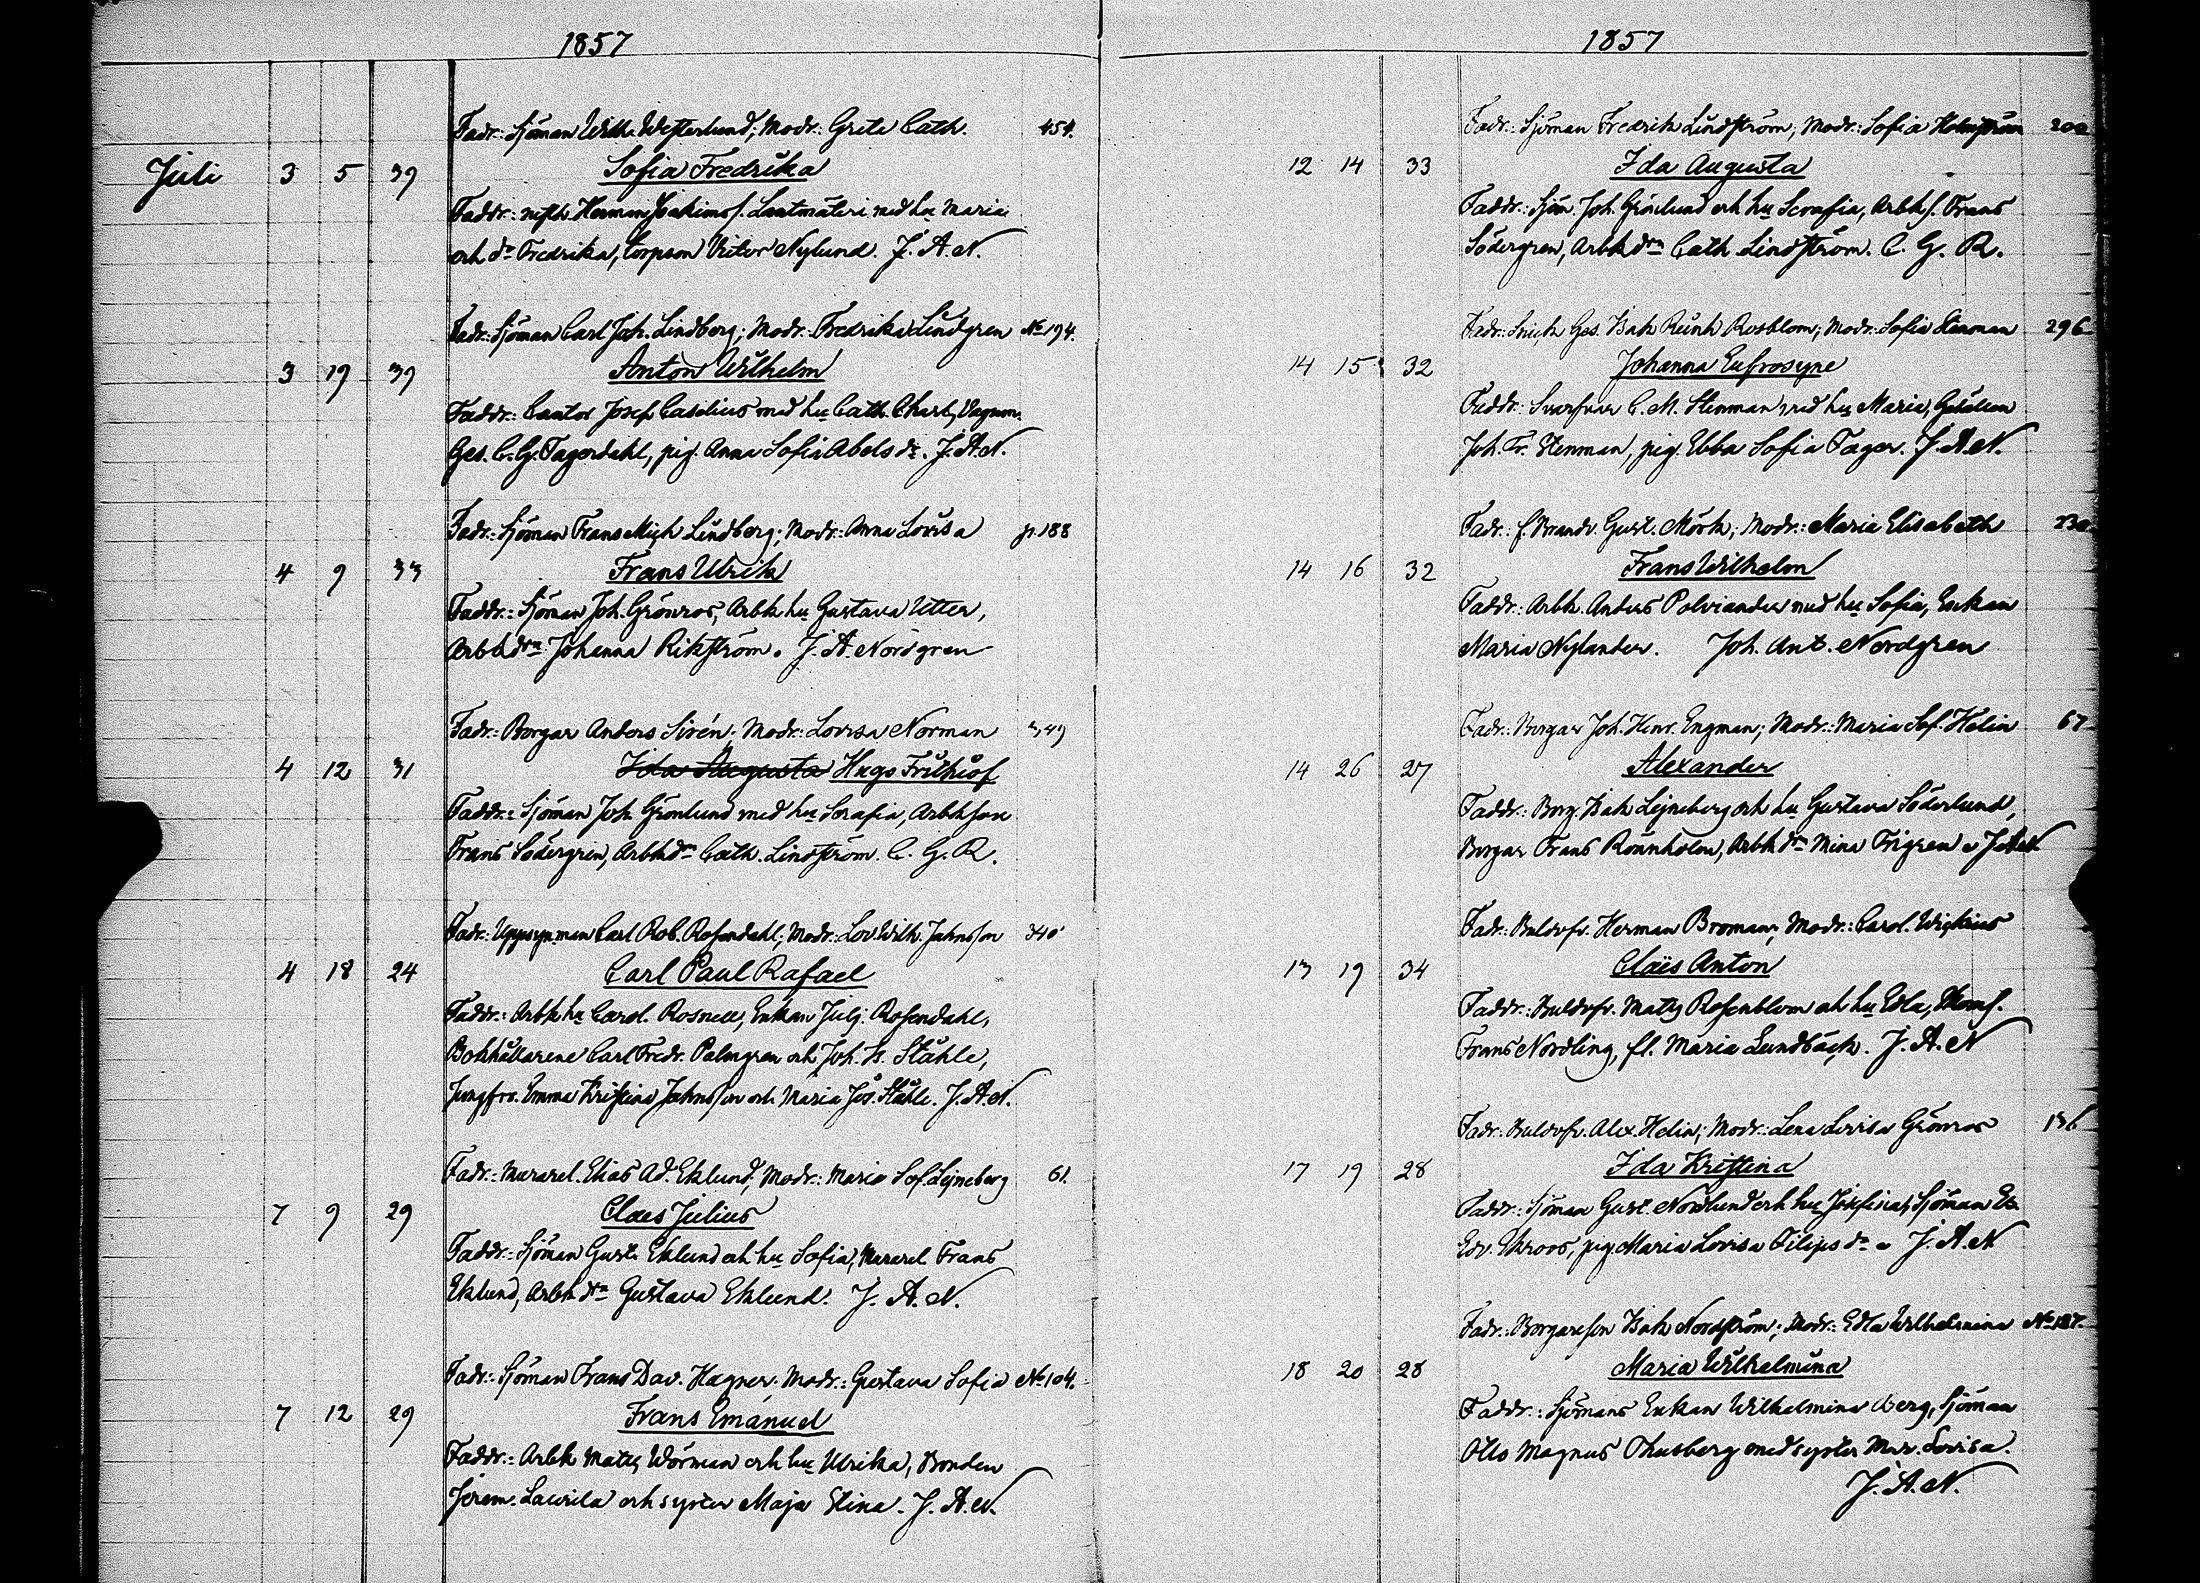 1857
Fadr: Sjöman Wilh. Westerlund; Modr: Greta Cath. 454.
Juli 3 5 39 Sofia Fredrika
Faddr: Herman Joakimss. Lantmäteri med hu Maria
och dr Fredrika, torpson Victor Nylund. J. A. N.
Fadr: Sjöman Carl Joh. Lindberg; Modr: Fredrika Lindgren No 194.
3 19 39 Anton Wilhelm
Faddr: Cantor Josef Caselius med hu Cath. Charl, Vagnm.
Ges. C. G. Fagerdahl, pig. Anna Sofia Abels dr. J. A. N.
Fadr: Sjöman Frans Mich Lindberg; Modr: Anna Lovisa p. 188
4 9 33 Frans Ulrik
Faddr: Sjöman Joh. Grönros, Arbk hu Gustava Utter,
Arbkdrn Johanna Rikström. J. A. Nordgren
Fadr: Borgar Anders Sirén. Modr: Lovisa Norman 349
4 12 31 Ida Augusta Hugo Frithiof
Faddr: Sjöman Joh Grönlund med hu Serafia, Arbkson
Frans Södergren, Arbkdrn Cath. Lindström. C. G. R.
Fadr: Uppsynman Carl Rob. Rosendahl; Modr: Lov. Wilh. Jahnsson 340
4 18 24 Carl Paul Rafael
Faddr: Arbk hu Carol. Rosnell, Enkan Julj. Rosendahl,
Bokhållarene Carl Fredr. Palmgren och Joh. Is. Ståhle,
Jungfrr. Emma Kristina Jahnsson och Maria Jos. Ståhle. J. A. N.
Fadr: Murarel. Elias Ad. Eklund, Modr: Maria Sof. Lejneberg 61.
7 9 29 Claes Julius
Faddr: Sjöman Gust. Eklund och hu Sofia, Murarel Frans
Eklund, Arbk drn Gustava Eklund. J. A. N.
Fadr: Sjöman Frans Dav. Hagner. Modr: Gustava Sofia No 104.
7 12 29 Frans Emanuel
Faddr: Arbk Matts Wörman och hu Ulrika, Bonden
Jerem. Laurila och syster Maja Stina. J. A. N.
1857
Fadr: Sjöman Fredrik Lindström; Modr: Sofia Holmström 200
12 14 33 Ida Augusta
Faddr: Sjöm. Joh. Grönlund och hu Serafia, Arbks. Frans
Södergren, Arbk drn Cath Lindström. C. G. R.
Fadr: Snick Ges. Isak Reinh Rosblom; Modr: Sofia Stenman 296
14 15 32 Johanna Eufrosyne
Faddr: Svarfvar C. M. Stenman med hu Maria, Gesällen
Joh. Fr. Stenman, pig. Ebba Sofia Fager. J. A. N.
Fadr: f. Brandv. Gust. Mörk; Modr: Maria Elisabeth 230
14 16 32 Frans Wilhelm
Faddr: Arbk. Anders Polviander med hu Sofia, Enkan
Maria Nylander. Joh. Ant. Nordgren
Fadr: Borgar Joh. Henr. Engman; Modr: Maria Sof. Helin 67
14 26 27 Alexander
Faddr: Borg. Isak Lejneberg och hu Gustava Söderlund,
Borgar Frans Rönnholm, Arbk drn Mina Frigren. J. A. N.
Fadr: Buldofr. Herman Broman; Modr: Carol. Wickius
13 19 34 Claës Anton
Faddr: Buldofr. Matts Rosenblom och hu Edla,
Frans Nordling, fl. Maria Lundbäck. J. A. N
Fadr: Buldofr. Alex. Helin; Modr: Lena Lovisa Grönros 136
17 19 28 Ida Kristina
Faddr: Sjöman Gust. Nordlund och hu Josefina, Sjöman
Edv. Throos, pig. Maria Lovisa Filips dr. J. A. N
Fadr: Borgareson Isak Nordström; Modr: Edla Wilhelmina No 187.
18 20 28 Maria Wilhelmina
Faddr: Sjömans Enkan Wilhelmina Berg, Sjöman
Otto Magnus Thusberg med syster Mar. Lovisa.
J. A. N.